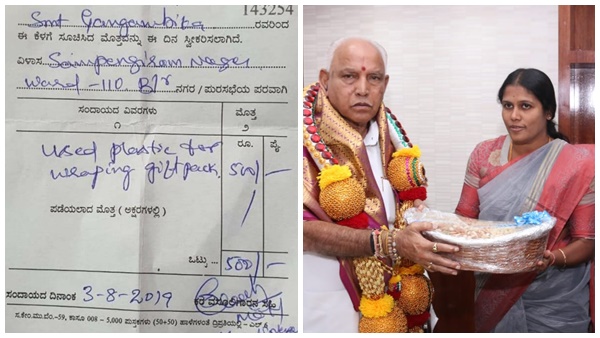 143254
Smt Gangambika ರವರಿಂದ
ಈ ಕೆಳಗೆ ಸೂಚಿಸಿದ ಮೊತ್ತವನ್ನು ಈ ದಿನ ಸ್ವೀಕರಿಸಲಾಗಿದೆ.
ವಿಳಾಸ Sampengiram Nagar
Ward -110. B/r ನಗರ / ಪುರಸಭೆಯ ಪರವಾಗಿ
ಸಂದಾಯದ ವಿವರಗಳು ಮೊತ್ತ
೧ ೨
ರೂ. ಪೈ.
used plastic for
wraping gift pack. 500/ -
ಪಡೆಯಲಾದ ಮೊತ್ತ ( ಅಕ್ಷರಗಳಲ್ಲಿ )
ಒಟ್ಟು ... 500/ -
ಸಂದಾಯದ ದಿನಾಂಕ 3-8-2019 ಕರ ವಸೂಲಿಗಾರನ ಸಹಿ
ಸ.ಕೇಂ.ಮು.ಬೆಂ.-59, ಕಾಸೂ 008 - 5,000 ಪುಸ್ತಕಗಳು (50+50) ಹಾಳೆಗಳಂತೆ ದ್ವಿಪ್ರತಿಯಲ್ಲಿ -